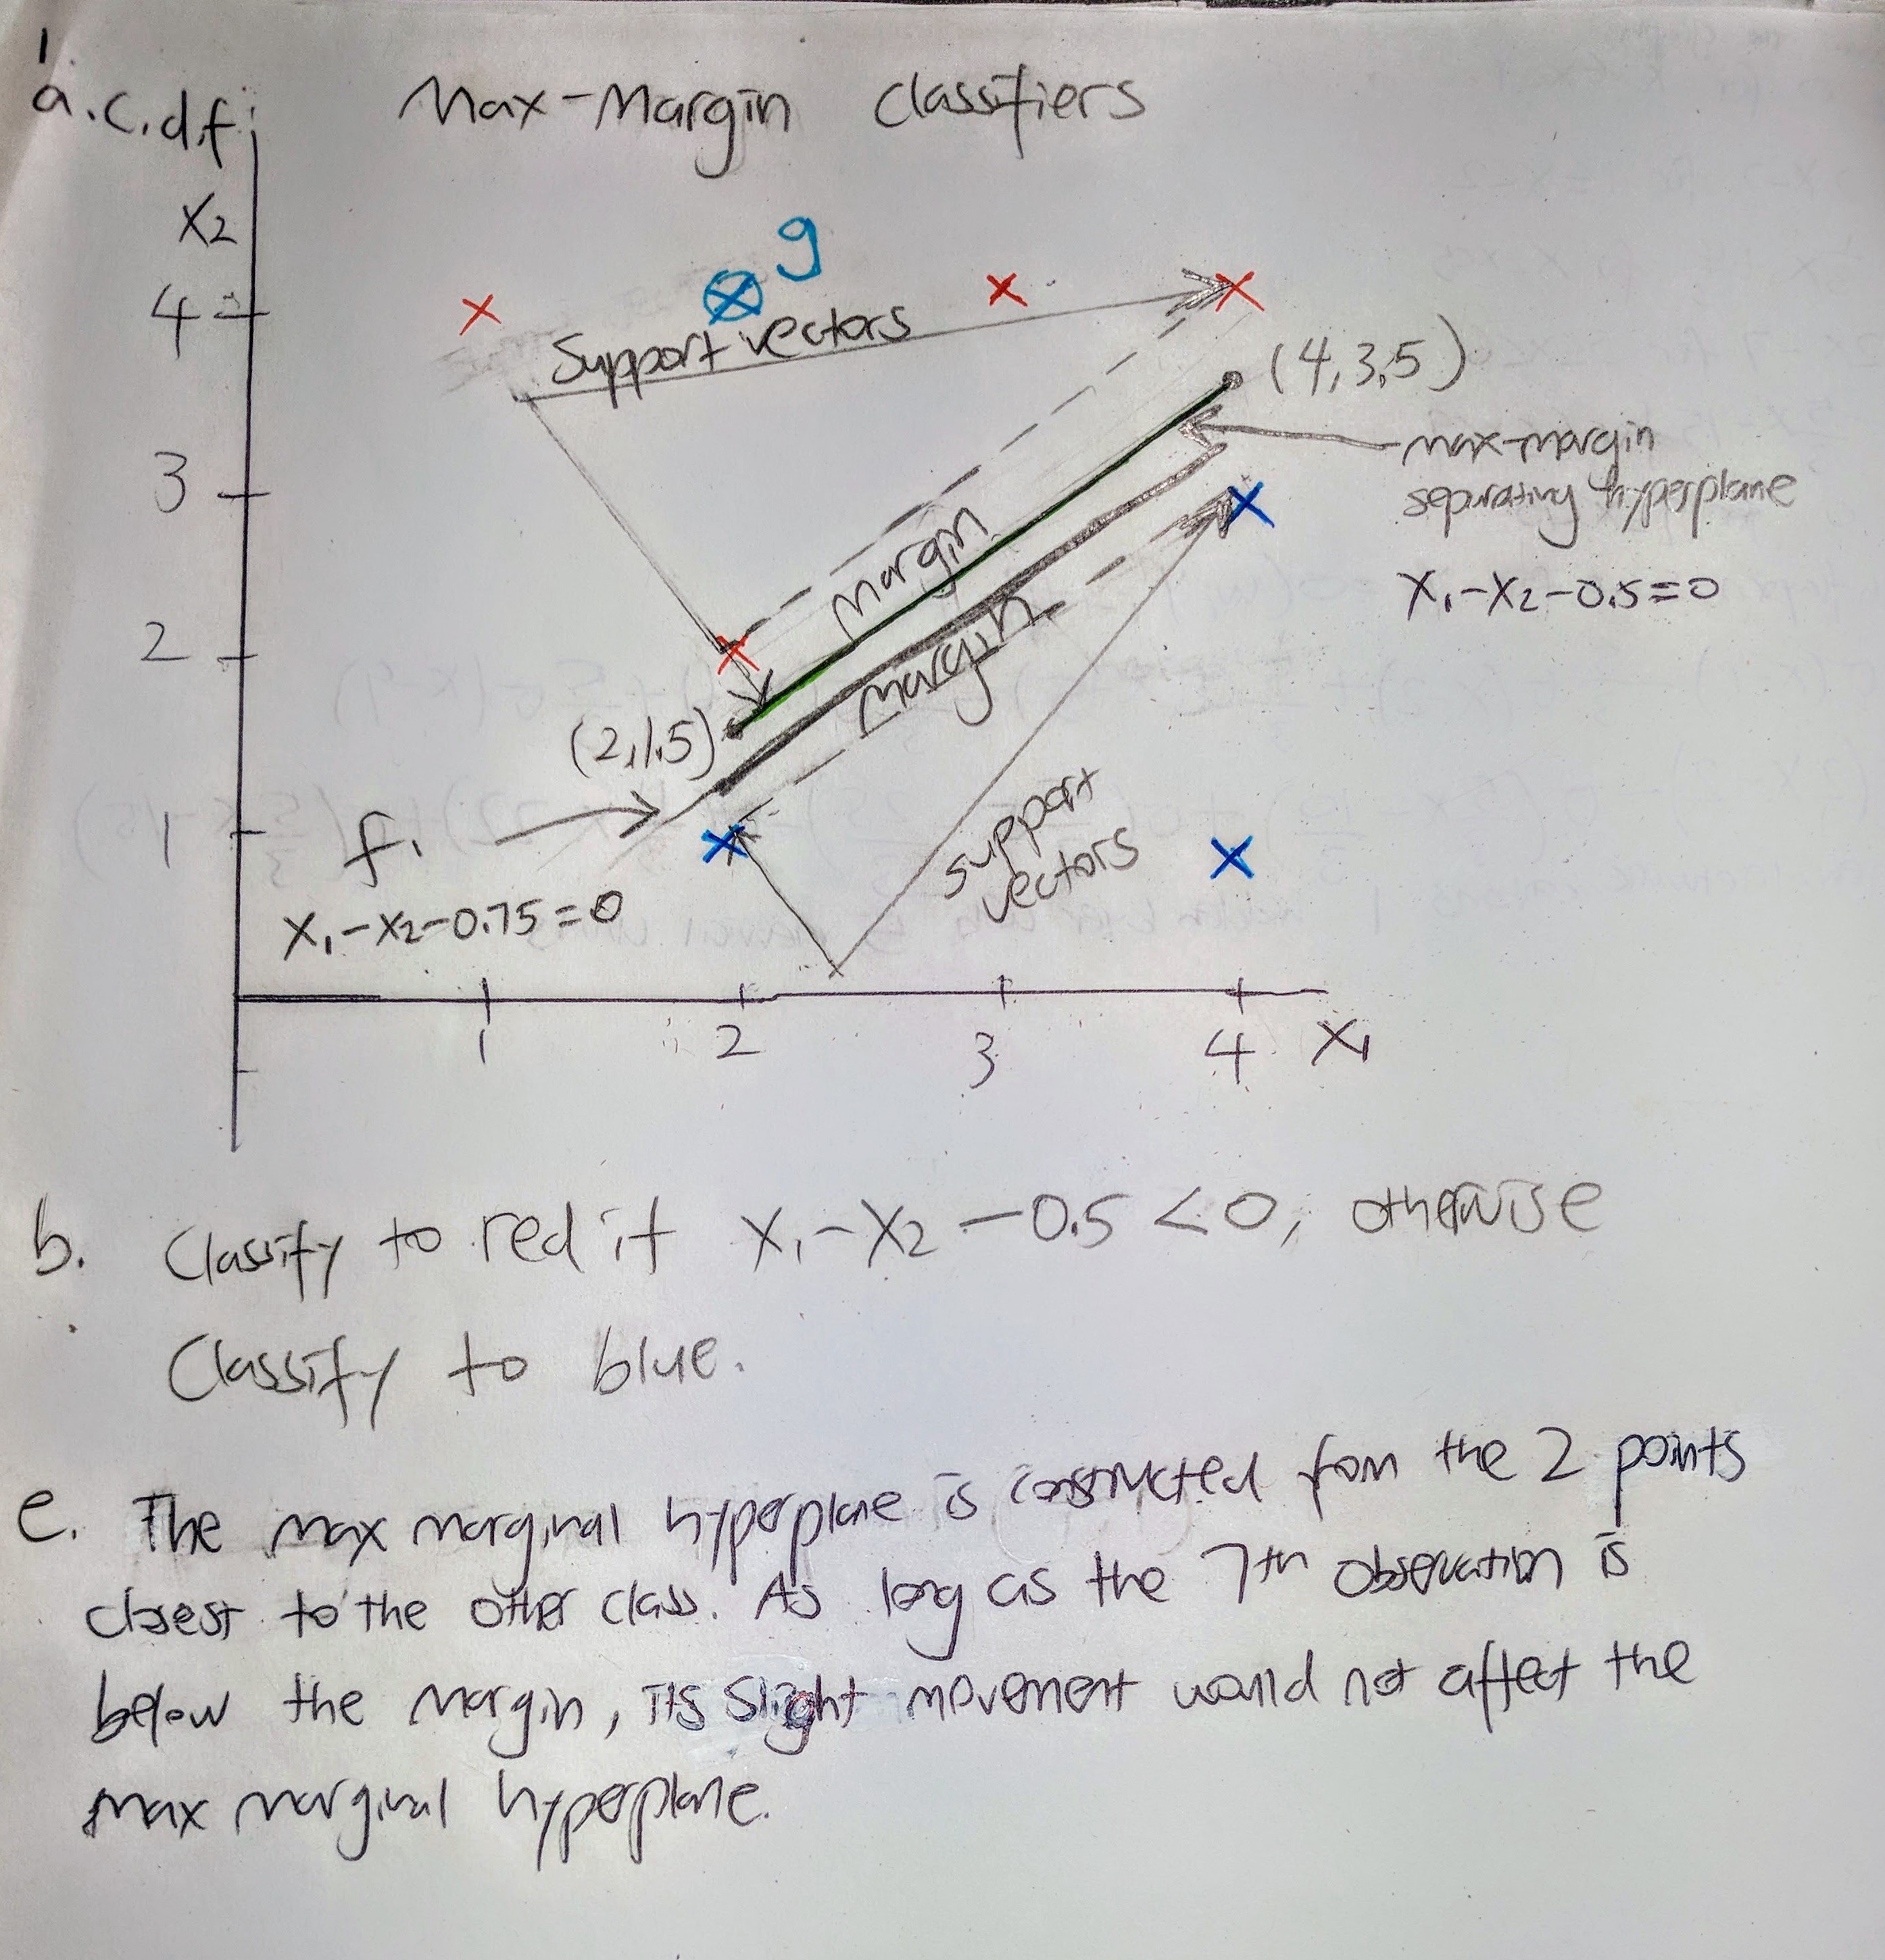 1.
a.c.d.f.
Max-Margin Classifiers
X2
g
4
Support vectors
(4,3.5)
3
max-margin
separating hyperplane
margin
X1-X2-0.5=0
2
margin
(2,1.5)
support
vectors
1
f.
X1-X2-0.75=0
1 2 3 4 X1
b. Classify to red if X1-X2-0.5<0, otherwise
Classify to blue.
e. The max marginal hyperplane is constructed from the 2 points
closest to the other class. As long as the 7th observation is
below the margin, its slight movement would not affect the
max marginal hyperplane.